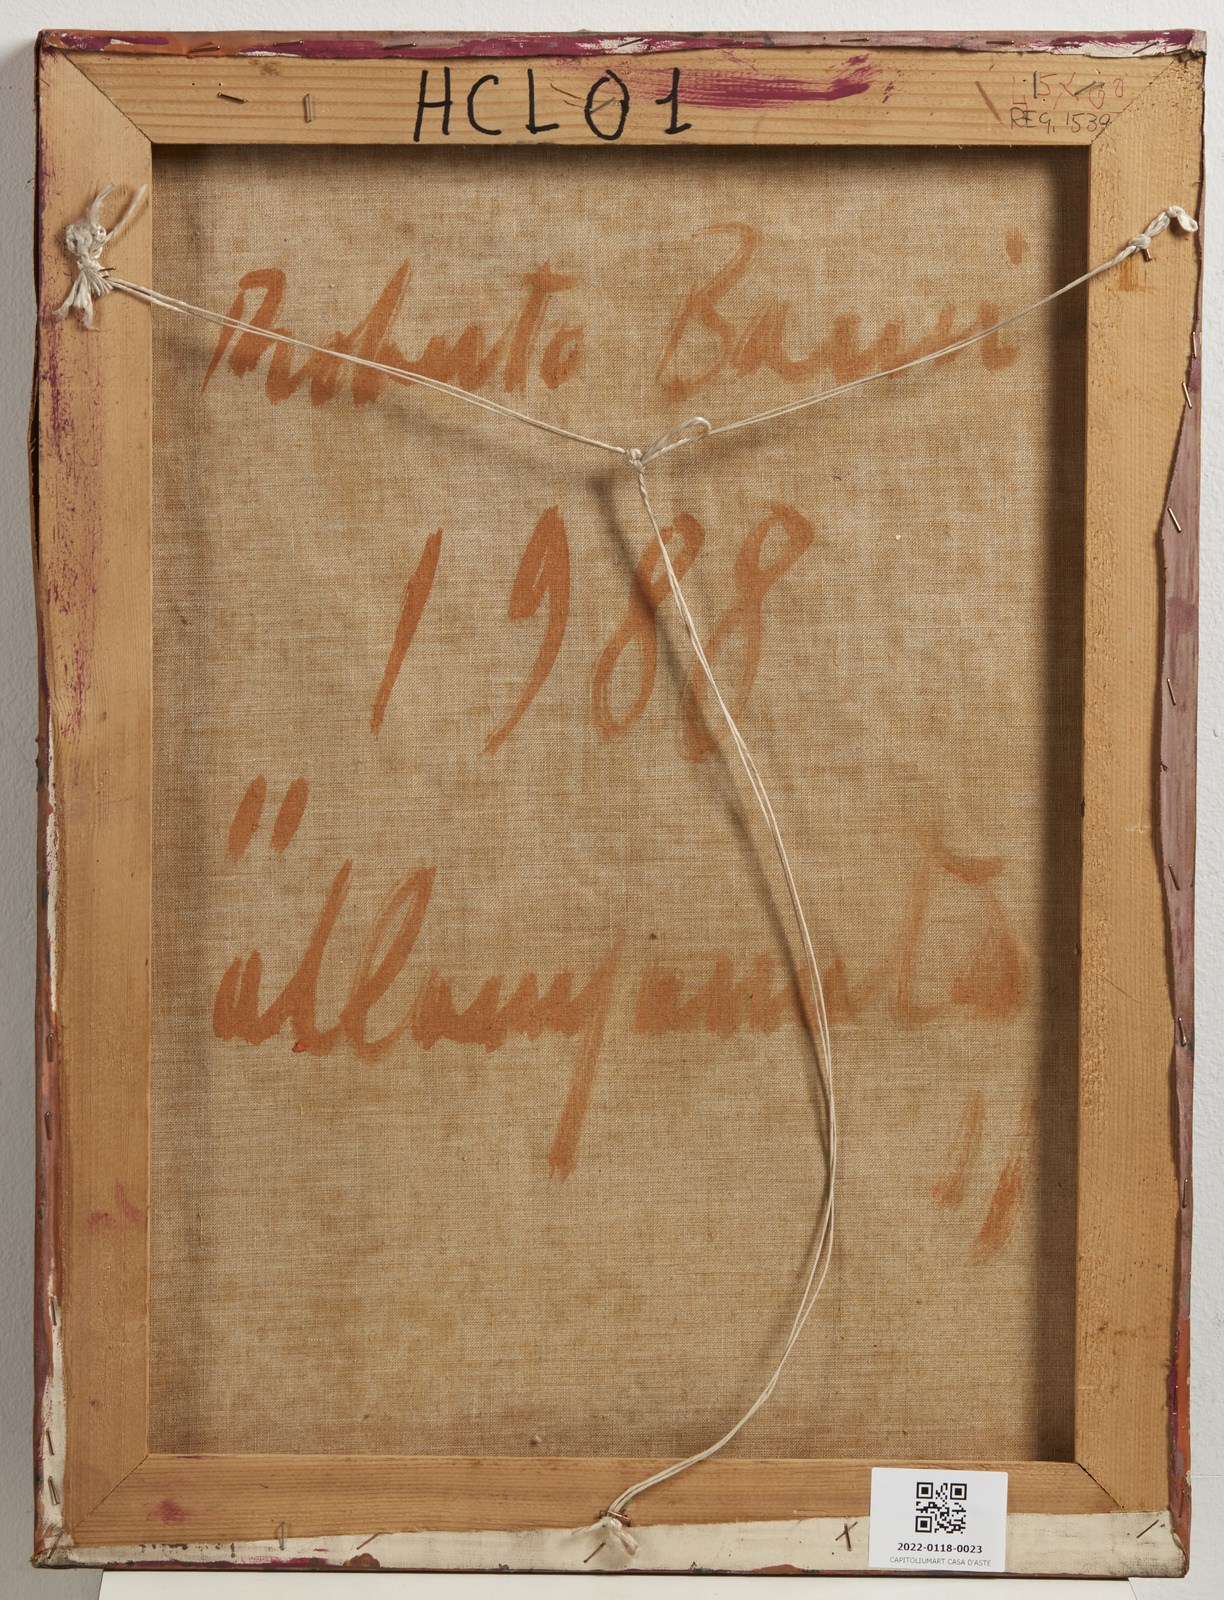 HCL01
REG. 1539
Roberto Barni
1988
"allampanato"
2022-0118-0023
CAPITOLIUMART CASA D'ASTE